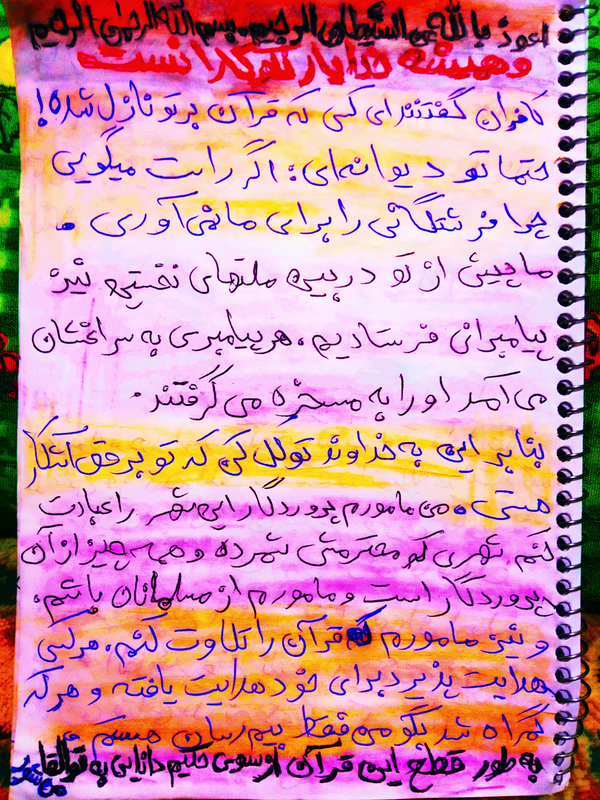 اعوذ بالله من الشیطان الرجیم، بسم الله الرحمن الرحیم
و همیشه خدا یار نکوکارانست
کافران گفتند ای کسی که قرآن بر تو نازل شده!
حتما تو دیوانه‌ای؛ اگر راست میگویی
چرا فرشتگانی را برای ما نمی‌آوری.
ما پیش از تو در بین ملتهای نخستین نیز
پیامبرانی فرستادیم، هر پیامبری به سراغشان
می‌آمد او را به مسخره می‌گرفتند.
بنابر این به خداوند توکل کن که تو بر حق آشکار
هستی. من مامورم پروردگار این شهر را عبادت
کنم شهری که محترمش شمرده و همه چیز از آن
پروردگار است و مامورم از مسلمانان باشم،
و نیز مامورم که قرآن را تلاوت کنم، هر کس
هدایت پذیرد برای خود هدایت یافته و هر که
گمراه شد بگو من فقط بیم رسان هستم
به طور قطع این قرآن از سوی حکیم دانایی به تو القا
می شود